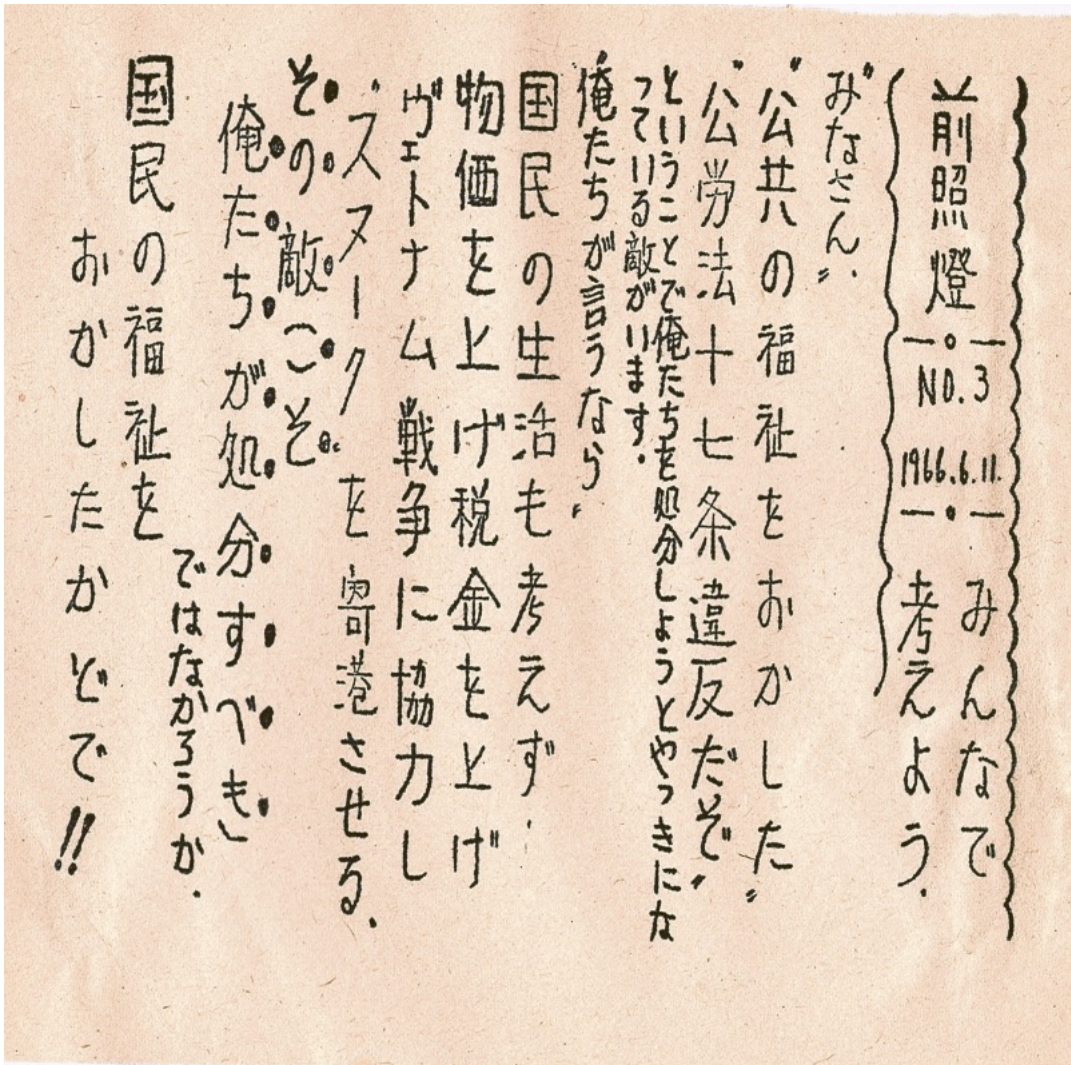 前照燈
NO.3
1966.6.11.
みんなで
考えよう.
"みなさん."
"公共の福祉をおかした"
"公労法十七条違反だぞ"
ということで俺たちを処分しようとやっきにな
っている敵がいます.
"俺たちが言うなら"
国民の生活も考えず.
物価を上げ税金を上げ
ヴェトナム戦争に協力し
"スヌーク"を寄港させる.
その敵こそ
俺たちが処分すべき」
ではなかろうか.
国民の福祉を
おかしたかどで!!